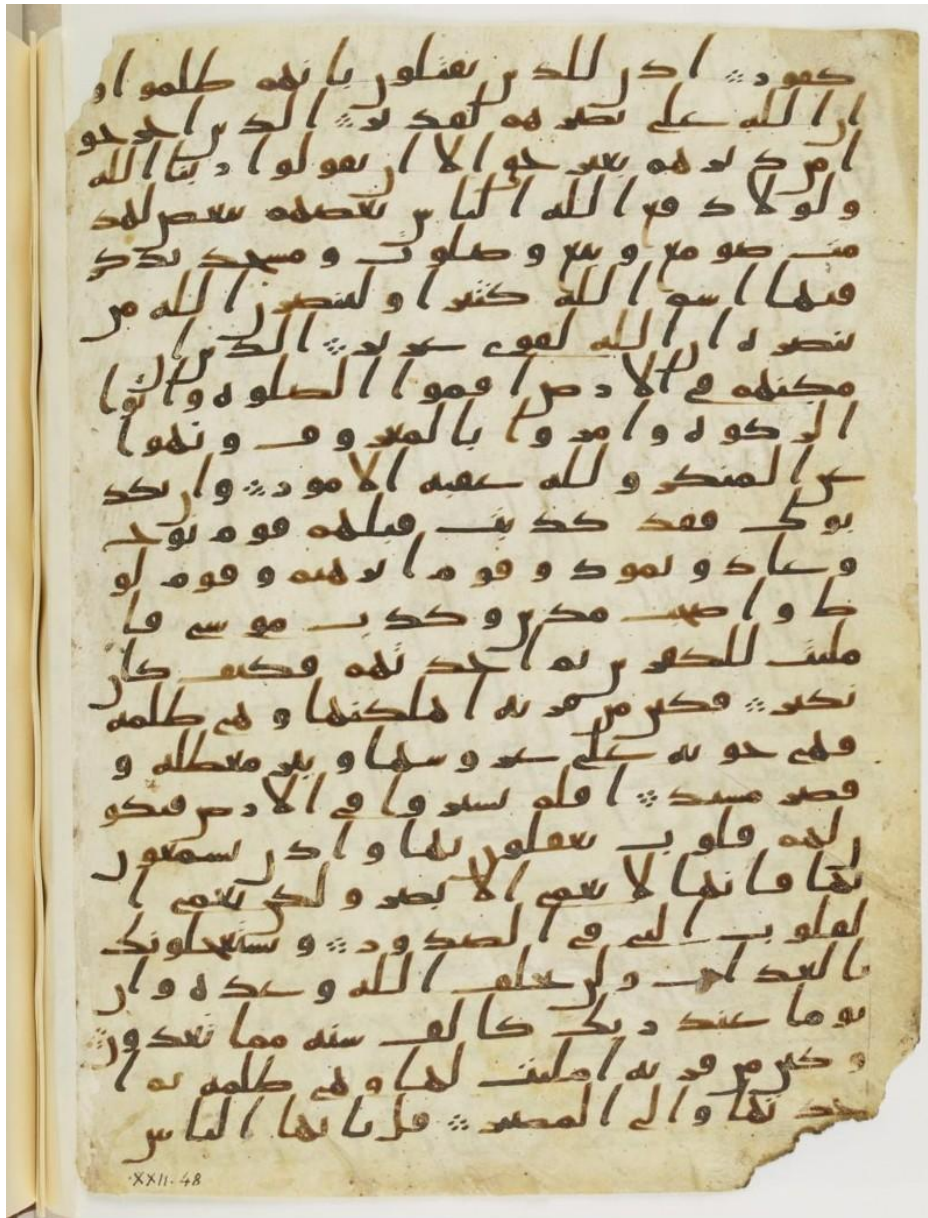 كفور اذن للذين يقتلون بانهم ظلموا و
ان الله على نصرهم لقدير الذين اخرجو
ا من ديرهم بغير حق الا ان يقولوا ربنا الله
ولولا دفع الله الناس بعضهم ببعض لهد
مت صومع وبيع وصلوت ومسجد يذكر
فيها اسم الله كثيرا ولينصرن الله من
ينصره ان الله لقوي عزيز الذين ا
ن مكنهم في الارض اقموا الصلوه واتوا
الزكوه وامروا بالمعروف ونهوا
عن المنكر ولله عقبه الامور وان يكذ
بوك فقد كذبت قبلهم قوم نوح
وعاد وثمود وقوم ابرهيم وقوم لو
ط واصحب مدين وكذب موسى فا
مليت للكفرين ثم اخذتهم فكيف كان
نكير فكين من قريه اهلكنها وهي ظلمه
فهي خويه على عروشها وبير معطله و
قصر مشيد افلم يسيروا في الارض فتكو
ن لهم قلوب يعقلون بها واذن يسمعون
بها فانها لا تعمى الابصر ولكن تعمى ا
لقلوب التي في الصدور ويستعجلونك
بالعذاب ولن يخلف الله وعده وان
يوما عند ربك كالف سنه مما تعدون
وكين من قريه امليت لها وهي ظلمه ثم ا
خذتها والي المصير قل يايها الناس
XXII. 48